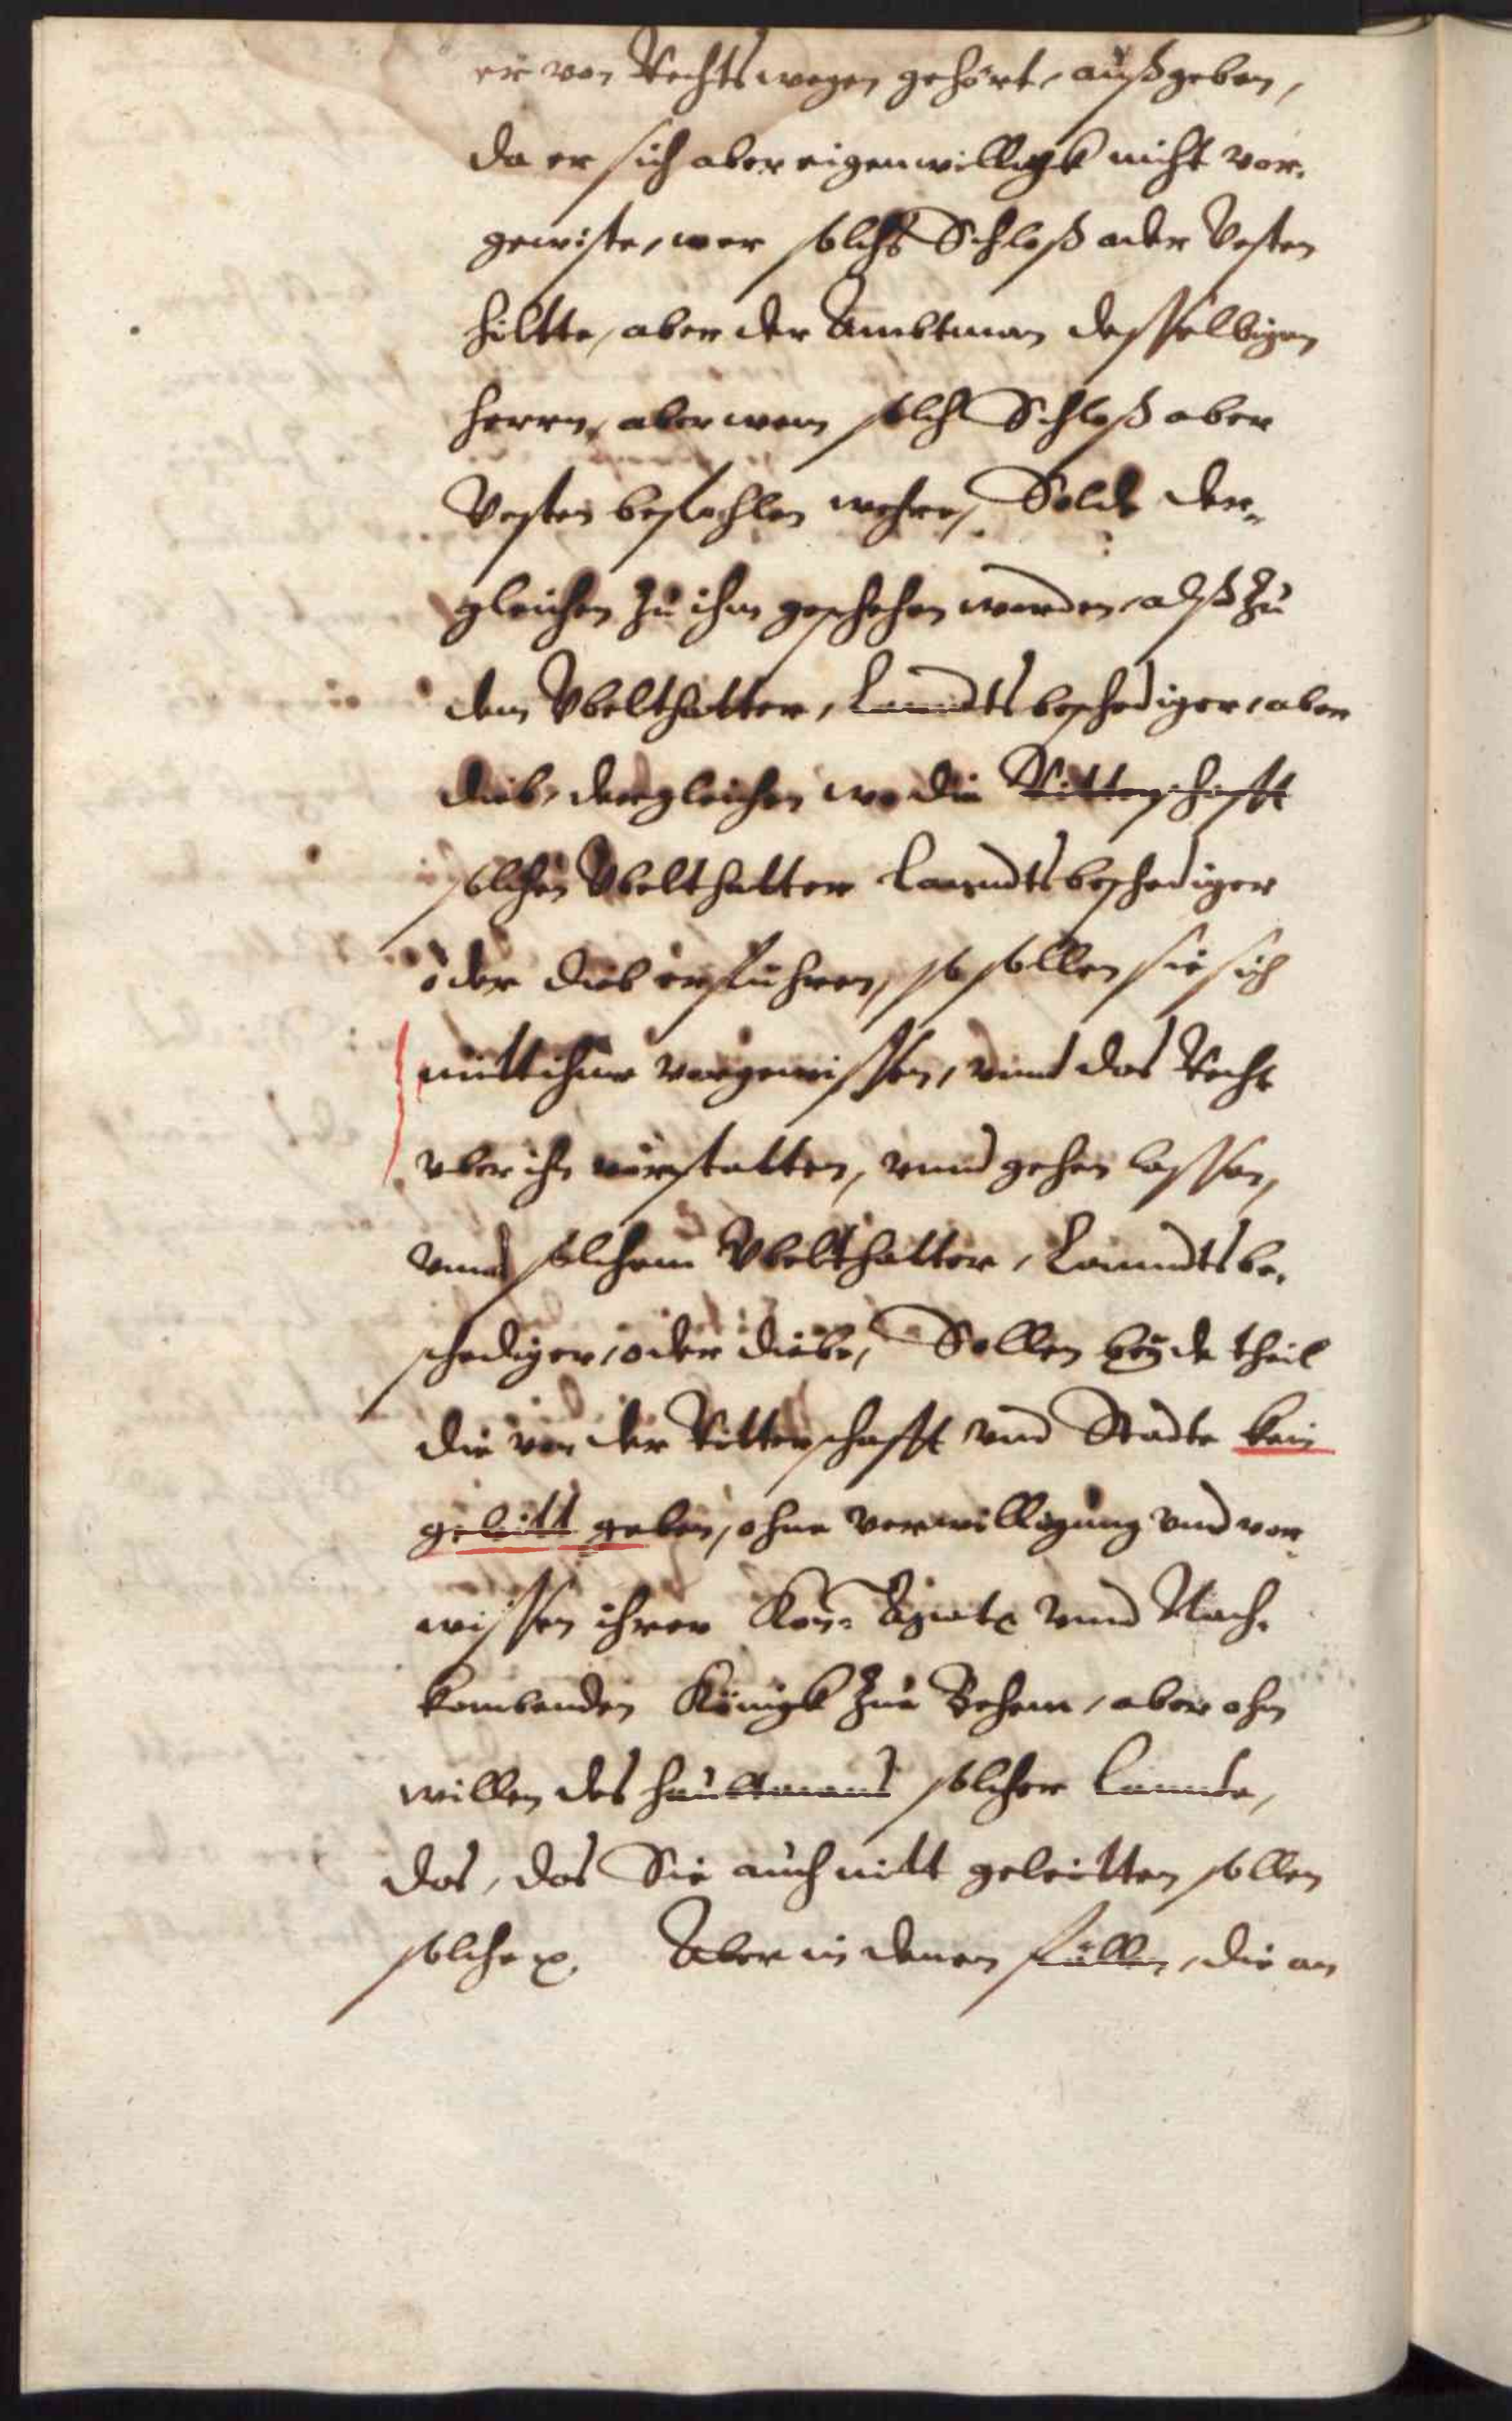 er von Rechts wegen gehört, außgeben,
da er sich aber eigenwilligk nicht vor,
gewiste, wer solchs Schloß oder Vesten
hiltte, aber der Ambtman desselbigen
herrn, aber wem solch Schloß aber
Vesten befohlen wehre, Solde der„
gleichen zu ihm geschehen werden, alß zu
dem Vbelthatter, Landtsbeschediger, aber
dieb, dergleichen wo die Ritterschafft
solchen Vbelthatter Lanndtsbeschediger
oder dieb erfuhren, so sollen sie sich
mitt ihme vorgewissen, vnnd das Recht
vber ihn vorstatten, vnnd gehen lassen,
vnnd solchem Vbelthatter, Lanndtsbe,
schediger, oder diebe, Sollen beyde theil
die von der Ritterschafft vnd Stadte kein
geleitt geben, ohne verwilligung vnd vor„
wissen ihrer Kön: Mayt: vnnd Nach,
kombenden Königk zue Behem, aber ohn
willen des haubtmans solcher Lannde,
das, das Sie auch nitt geleitten sollen
solche Aber in denen fällen, die an